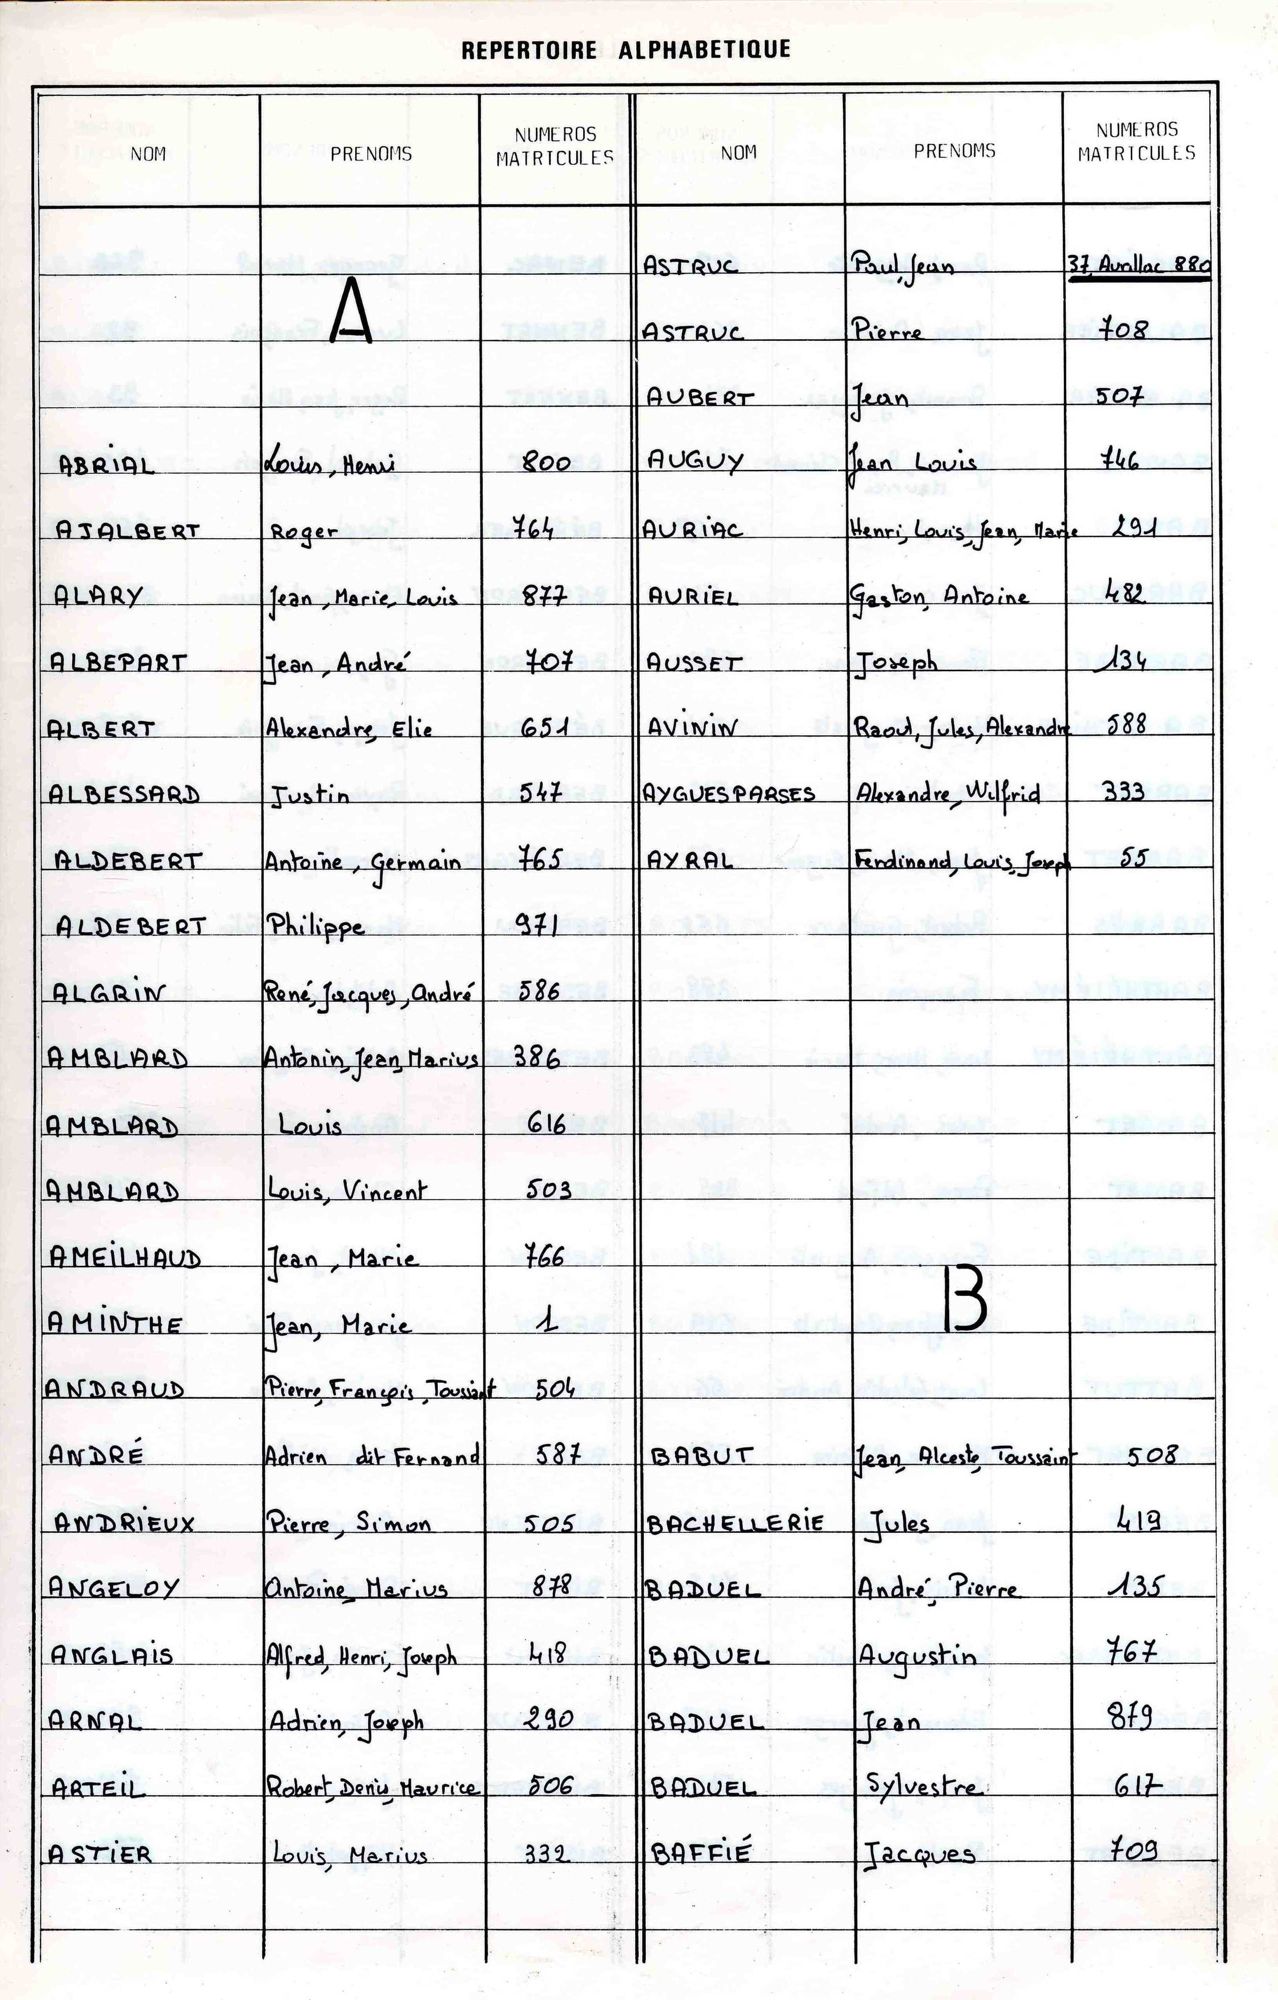 REPERTOIRE ALPHABETIQUE
NOM PRENOMS NUMEROS MATRICULES
A
ABRIAL Louis, Henri 800
AJALBERT Roger 764
ALARY Jean, Marie, Louis 877
ALBEPART Jean, André 707
ALBERT Alexandre, Elie 651
ALBESSARD Justin 547
ALDEBERT Antoine, Germain 765
ALDEBERT Philippe 971
ALGRIN René, Jacques, André 586
AMBLARD Antonin, Jean, Marius 386
AMBLARD Louis 616
AMBLARD Louis, Vincent 503
AMEILHAUD Jean, Marie 766
AMINTHE Jean, Marie 1
ANDRAUD Pierre, François, Toussaint 504
ANDRÉ Adrien dit Fernand 587
ANDRIEUX Pierre, Simon 505
ANGELOY Antoine, Marius 878
ANGLAIS Alfred, Henri, Joseph 418
ARNAL Adrien, Joseph 290
ARTEIL Robert, Denis, Maurice 506
ASTIER Louis, Marius 332
NOM PRENOMS NUMEROS MATRICULES
ASTRUC Paul, Jean 37, Aurillac 880
ASTRUC Pierre 708
AUBERT Jean 507
AUGUY Jean Louis 746
AURIAC Henri, Louis, Jean, Marie 291
AURIEL Gaston, Antoine 482
AUSSET Joseph 134
AVININ Raoul, Jules, Alexandre 588
AYGUESPARSES Alexandre, Wilfrid 333
AYRAL Ferdinand, Louis, Joseph 55
B
BABUT Jean, Alceste, Toussaint 508
BACHELLERIE Jules 419
BADUEL André, Pierre 135
BADUEL Augustin 767
BADUEL Jean 879
BADUEL Sylvestre 617
BAFFIÉ Jacques 709